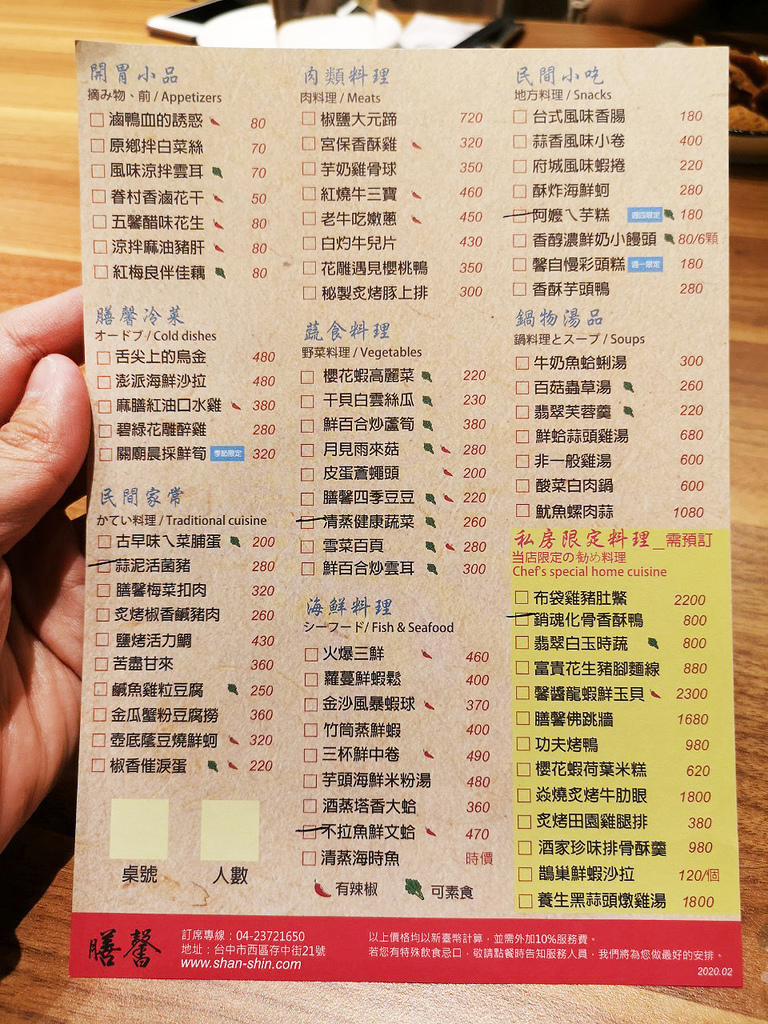 開胃小品
摘み物、前 / Appetizers
滷鴨血的誘惑 80
原鄉拌白菜絲 70
風味涼拌雲耳 70
眷村香滷花干 50
五馨醋味花生 80
涼拌麻油豬肝 80
紅梅良伴佳藕 80
膳馨冷菜
オードブ / Cold dishes
舌尖上的烏金 480
澎派海鮮沙拉 480
麻膳紅油口水雞 380
碧綠花雕醉雞 280
關廟晨採鮮筍 季節限定 320
民間家常
かてい料理 / Traditional cuisine
古早味ㄟ菜脯蛋 200
蒜泥活菌豬 280
膳馨梅菜扣肉 320
炙烤椒香鹹豬肉 260
鹽烤活力鯛 430
苦盡甘來 360
鹹魚雞粒豆腐 250
金瓜蟹粉豆腐撈 360
壺底蔭豆燒鮮蚵 320
椒香催淚蛋 220
桌號 人數
肉類料理
肉料理 / Meats
椒鹽大元蹄 720
宮保香酥雞 320
芋奶雞骨球 350
紅燒牛三寶 460
老牛吃嫩蔥 450
白灼牛兒片 430
花雕遇見櫻桃鴨 350
秘製炙烤豚上排 300
蔬食料理
野菜料理 / Vegetables
櫻花蝦高麗菜 220
干貝白雲絲瓜 230
鮮百合炒蘆筍 380
月見雨來菇 280
皮蛋蒼蠅頭 200
膳馨四季豆豆 220
清蒸健康蔬菜 260
雪菜百頁 280
鮮百合炒雲耳 300
海鮮料理
シーフード / Fish & Seafood
火爆三鮮 460
蘿蔓鮮蝦鬆 400
金沙風暴蝦球 370
竹筒蒸鮮蝦 400
三杯鮮中卷 490
芋頭海鮮米粉湯 480
酒蒸塔香大蛤 360
不拉魚鮮文蛤 470
清蒸海時魚 時價
有辣椒 可素食
民間小吃
地方料理 / Snacks
台式風味香腸 180
蒜香風味小卷 400
府城風味蝦捲 220
酥炸海鮮蚵 280
阿嬤ㄟ芋糕 週四限定 180
香醇濃鮮奶小饅頭 80/6顆
馨自慢彩頭糕 週一限定 180
香酥芋頭鴨 280
鍋物湯品
鍋料理とスープ / Soups
牛奶魚蛤蜊湯 300
百菇蟲草湯 260
翡翠芙蓉羹 220
鮮蛤蒜頭雞湯 680
非一般雞湯 600
酸菜白肉鍋 600
魷魚螺肉蒜 1080
私房限定料理_需預訂
当店限定の勧め料理
Chef's special home cuisine
布袋雞豬肚鱉 2200
銷魂化骨香酥鴨 800
翡翠白玉時蔬 800
富貴花生豬腳麵線 880
馨醬龍蝦鮮玉貝 2300
膳馨佛跳牆 1680
功夫烤鴨 980
櫻花蝦荷葉米糕 620
焱燒炙烤牛肋眼 1800
炙烤田園雞腿排 380
酒家珍味排骨酥羹 980
鵲巢鮮蝦沙拉 120/個
養生黑蒜頭燉雞湯 1800
膳馨
訂席專線：04-23721650
地址：台中市西區存中街21號
www.shan-shin.com
以上價格均以新臺幣計算，並需外加10%服務費。
若您有特殊飲食忌口，敬請點餐時告知服務人員，我們將為您做最好的安排。
2020.02